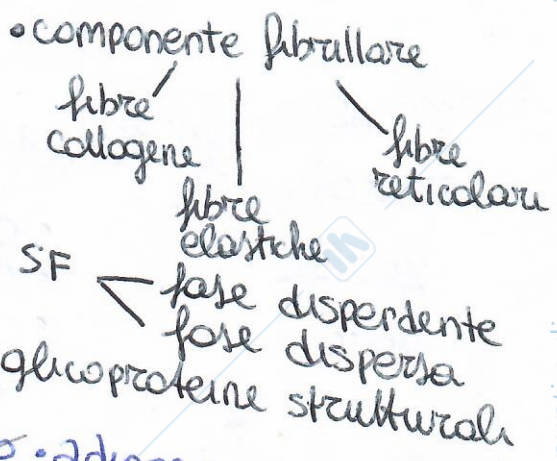 • componente fibrillare
fibre
collogene
fibre
reticolari
fibre
elastiche
SF
fase disperdente
fase dispersa
glicoproteine strutturali